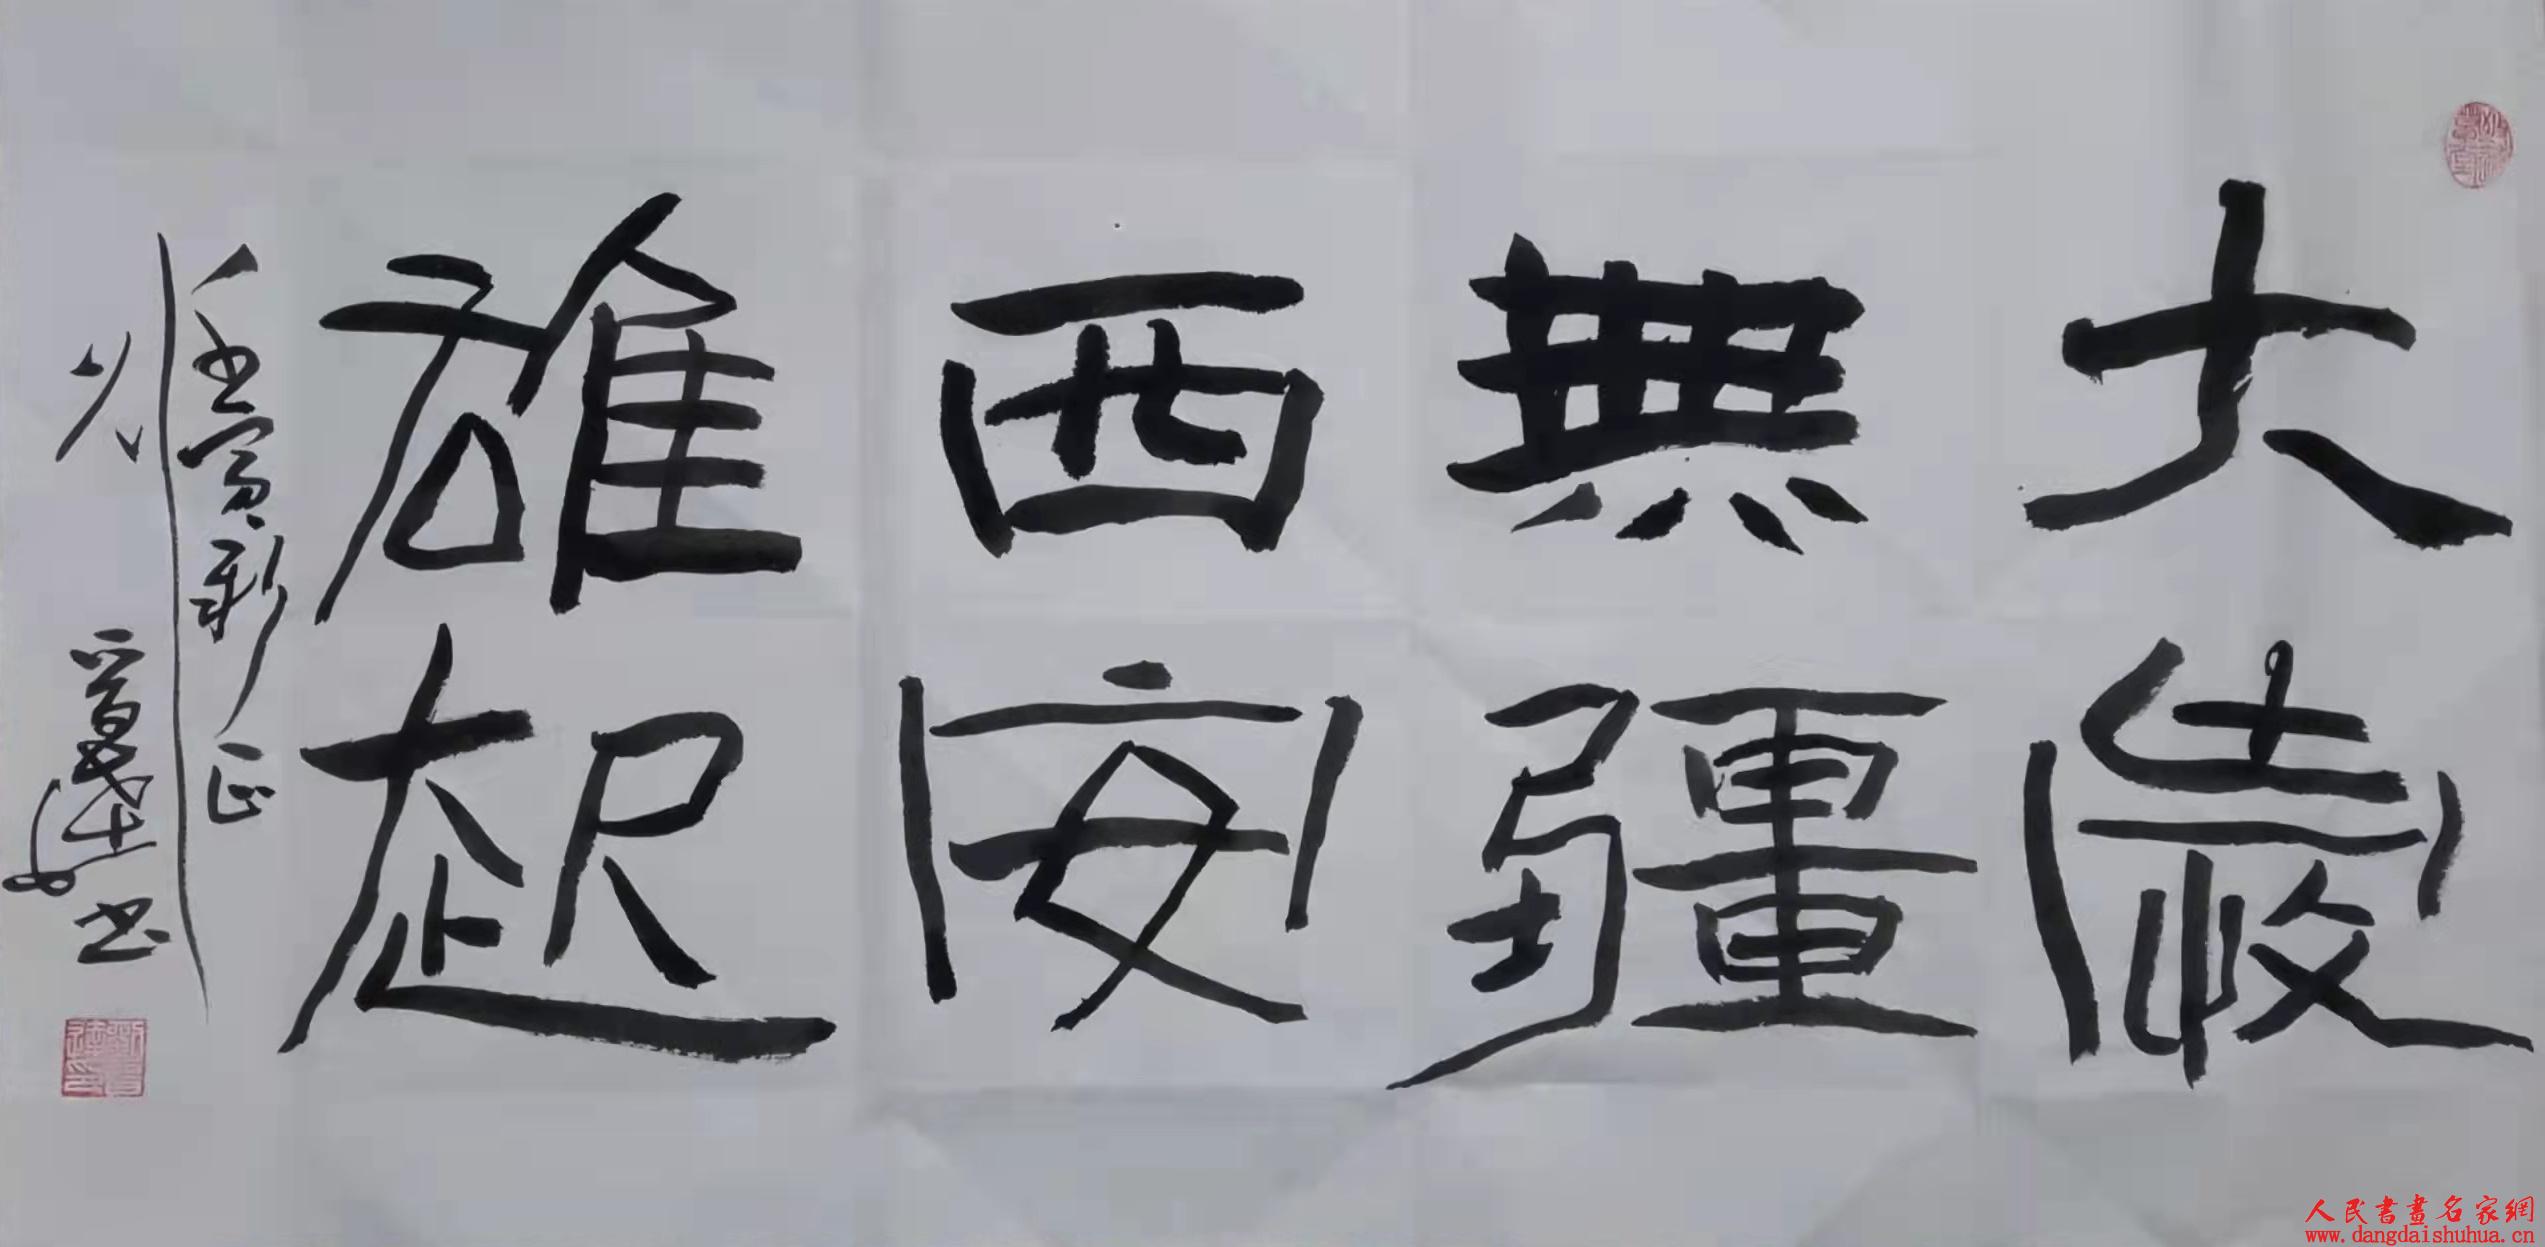 大愛
無疆
西安
雄起
壬寅新正
刘晋達书
人民書畫名家網
www.dangdaishuhua.cn